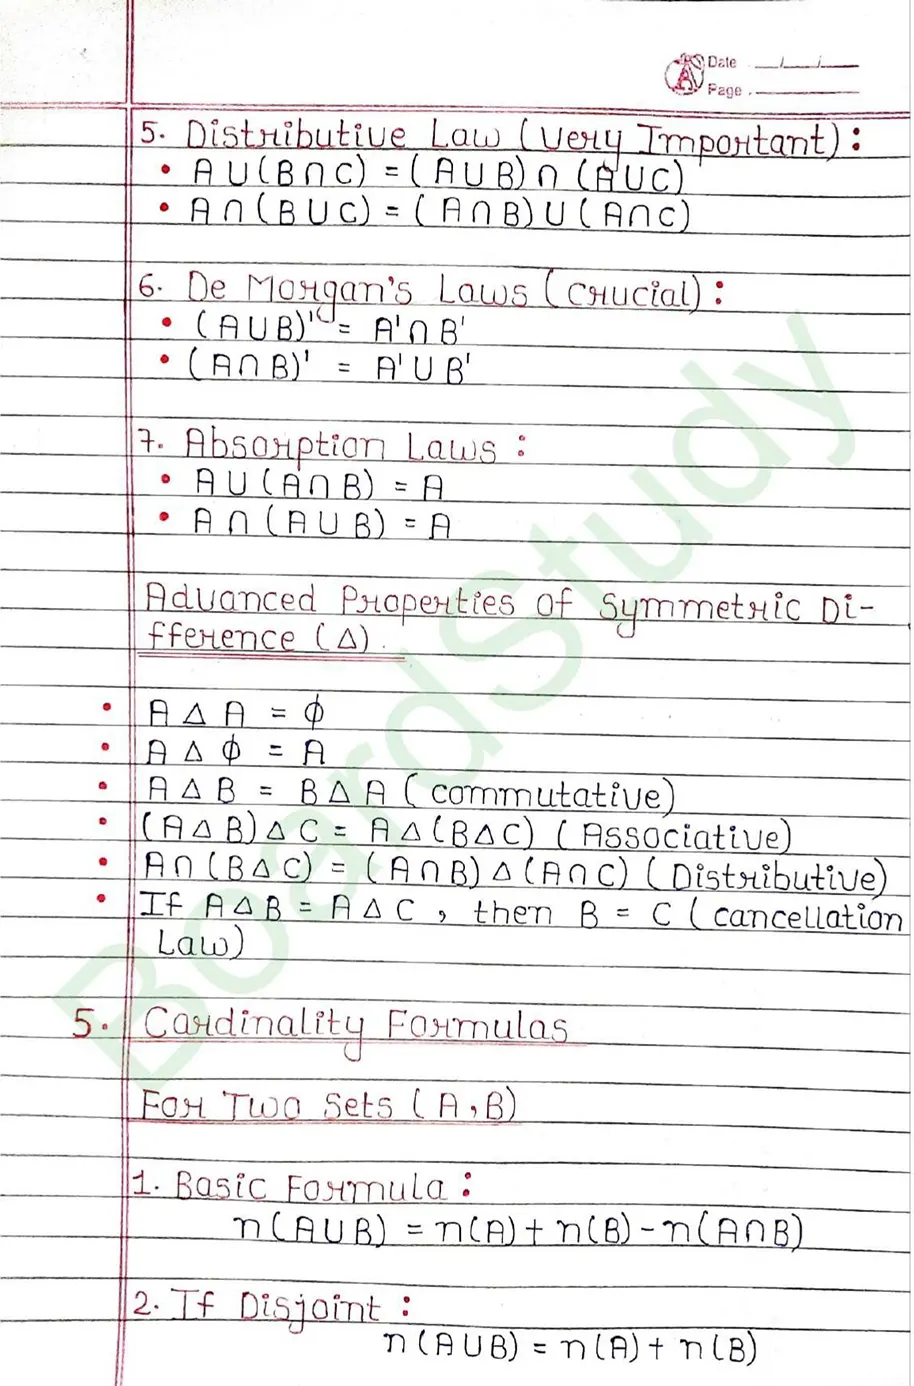 Date
Page
5. Distributive Law (Very Important):
• A∪(B∩C) = (A∪B)∩(A∪C)
• A∩(B∪C) = (A∩B)∪(A∩C)
6. De Morgan's Laws (crucial):
• (A∪B)' = A'∩B'
• (A∩B)' = A'∪B'
7. Absorption Laws:
• A∪(A∩B) = A
• A∩(A∪B) = A
Advanced Properties of Symmetric Di-
fference (Δ).
• A Δ A = ϕ
• A Δ ϕ = A
• A Δ B = B Δ A (commutative)
• (A Δ B) Δ C = A Δ (B Δ C) (Associative)
• A∩(B Δ C) = (A∩B) Δ (A∩C) (Distributive)
• If A Δ B = A Δ C, then B = C (cancellation
Law)
5. Cardinality Formulas
For Two Sets (A,B)
1. Basic Formula:
n(A∪B) = n(A) + n(B) - n(A∩B)
2. If Disjoint:
n(A∪B) = n(A) + n(B)
BoardStudy